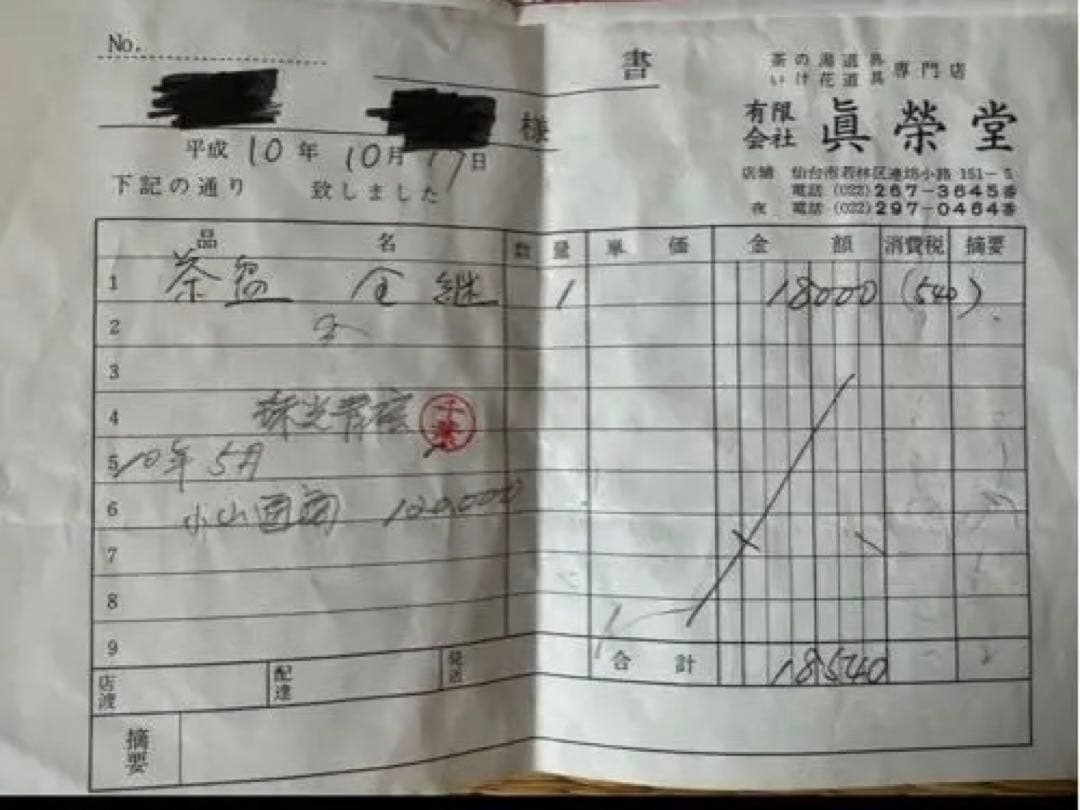 No.
書
茶の湯道具
いけ花道具 専門店
有限会社 眞榮堂
店舗 仙台市若林区連坊小路 151-5
電話 (022) 267-3645番
夜 電話 (022) 297-0464番
様
平成 10年 10月 17日
下記の通り 致しました
品名 数量 単価 金額 消費税 摘要
1 茶盌 金継 1 18000 (540)
2
3
4 珠光青磁 千葉
5 10年5月
6 小山 120,000
7
8
9
合計 18540
店渡 配達 発送
摘要